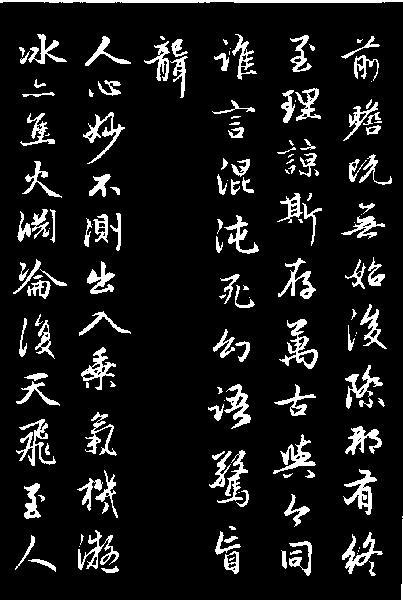 前瞻既無始後際那有終
至理諒斯存萬古與今同
誰言混沌死幻語驚盲
聾
人心妙不測出入乘氣機凝
冰亦焦火淵淪復天飛至人